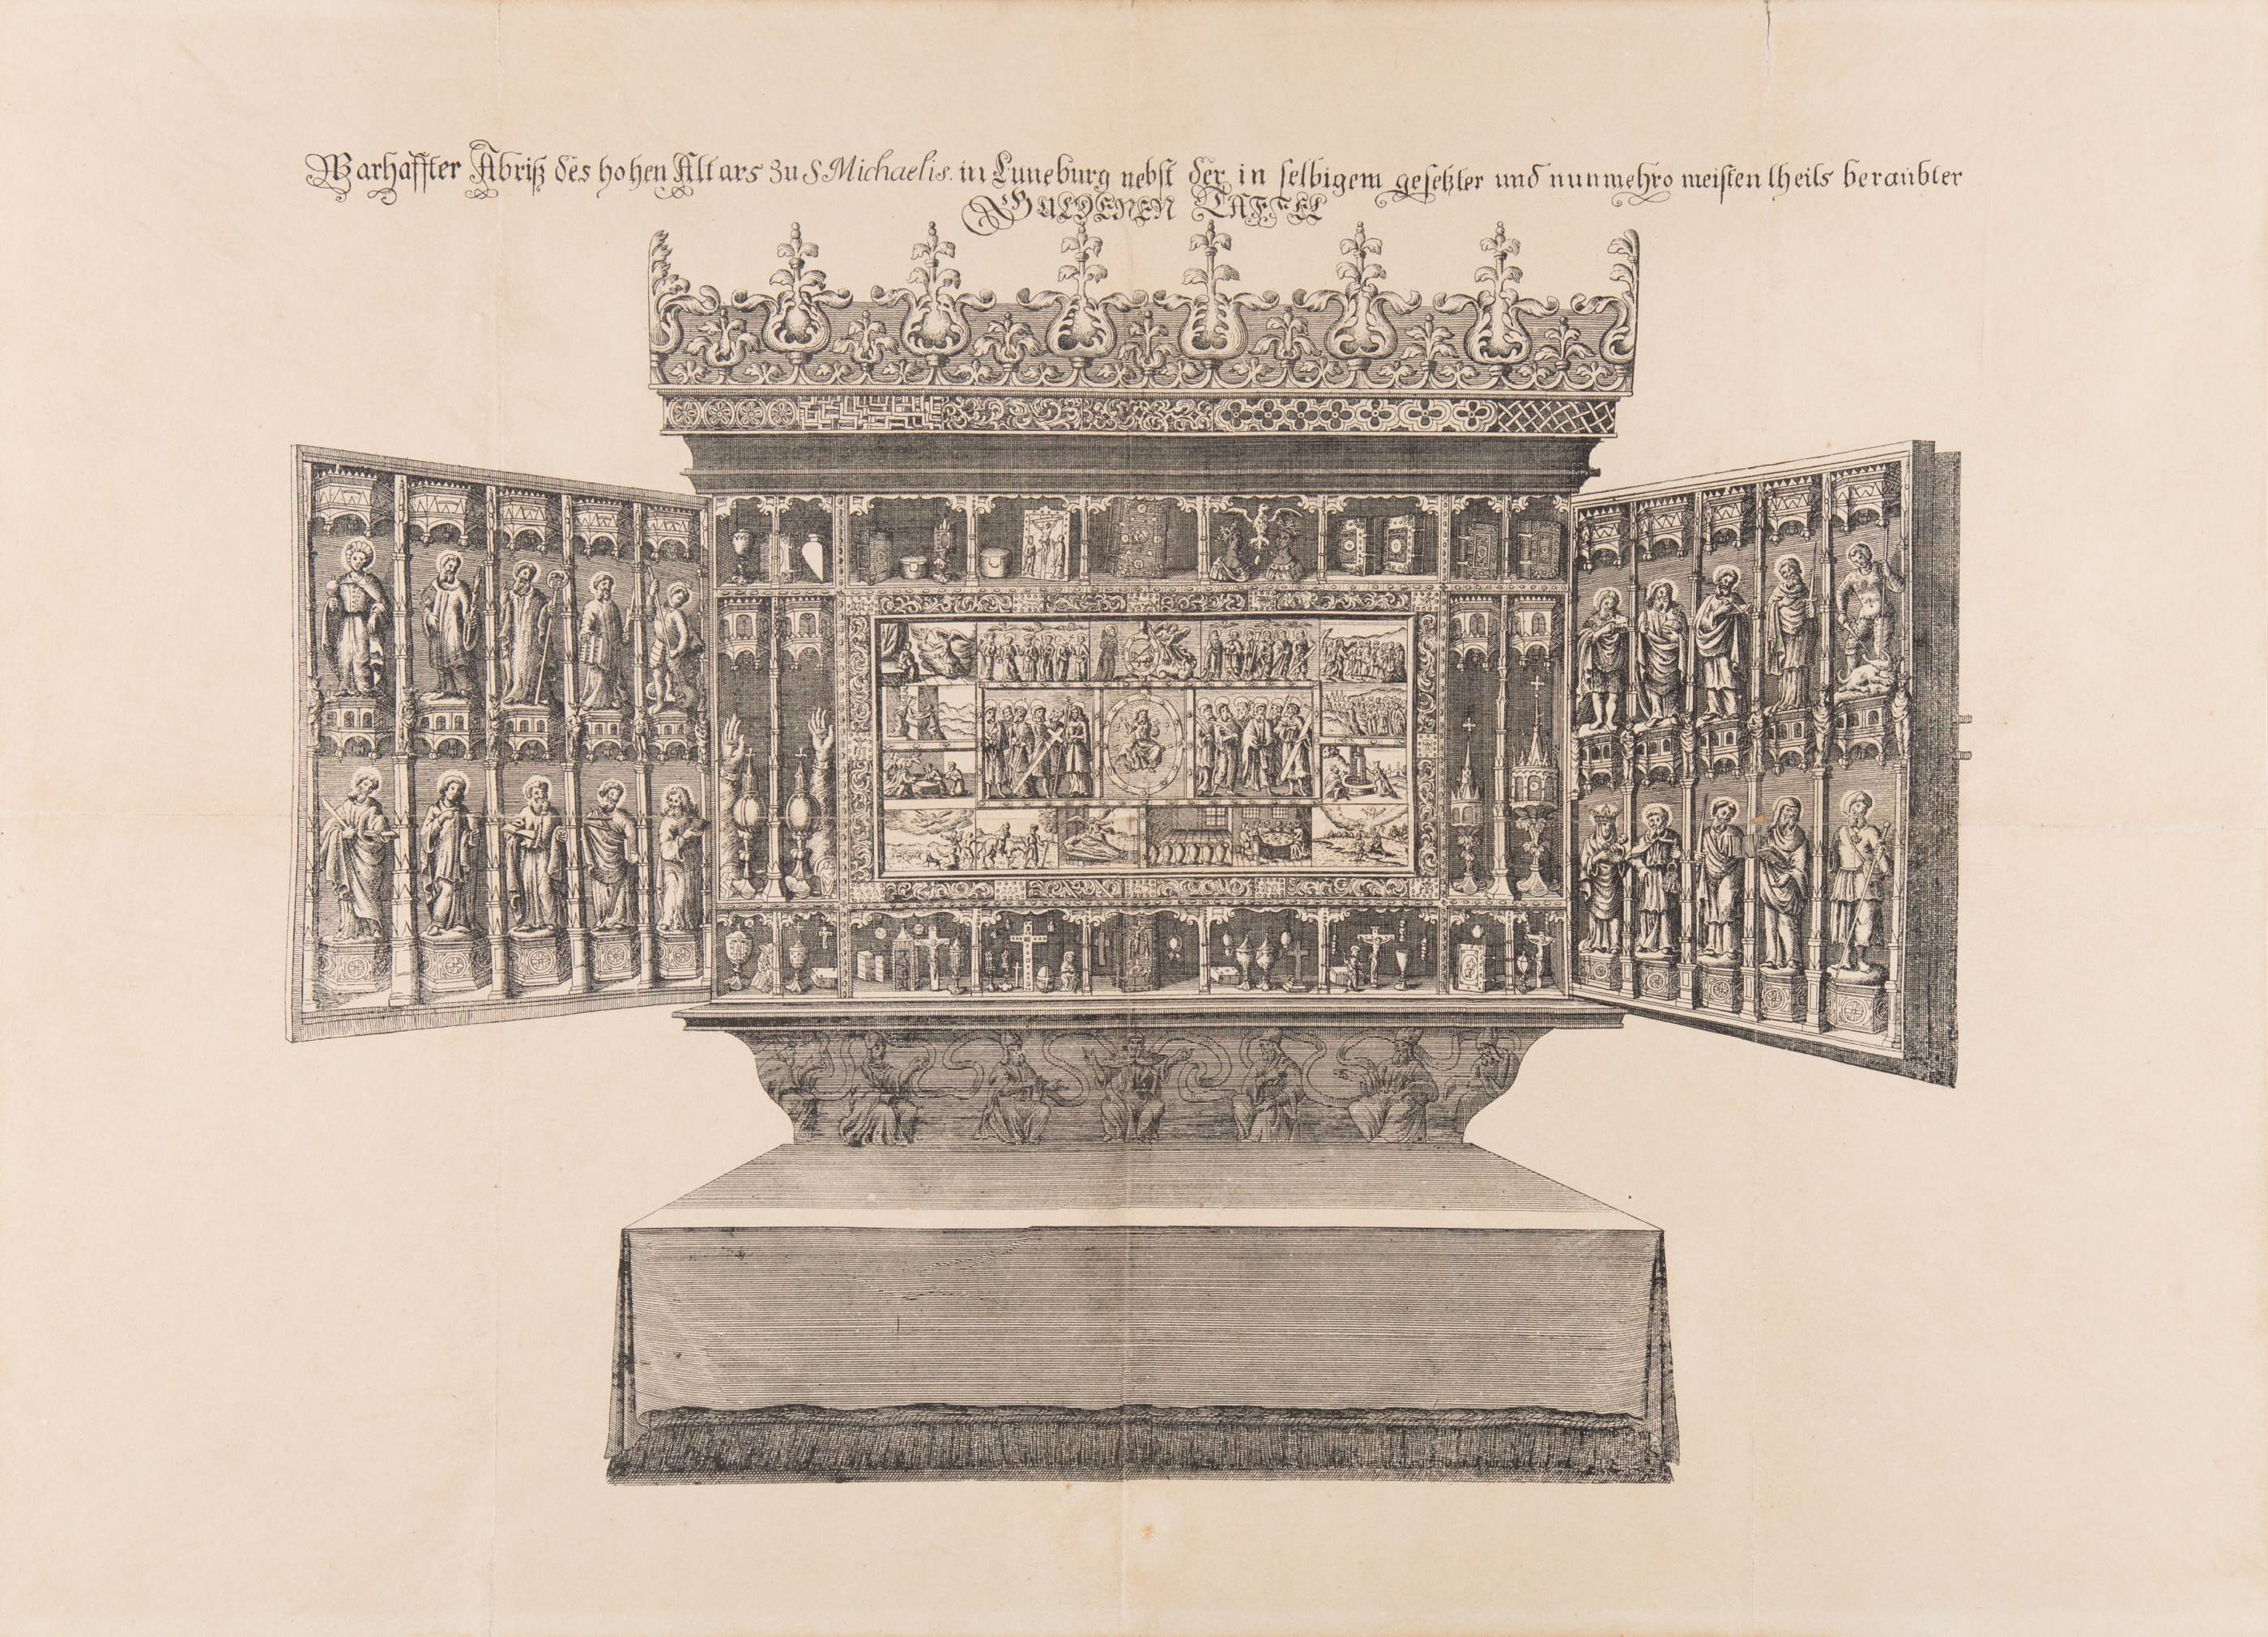 Warhaffter Abriß des hohen Altars zu S Michaelis. in Luneburg nebst der in selbigem gesetzter und nunmehro meistentheils beraubter
GULDENEN TAFFEL